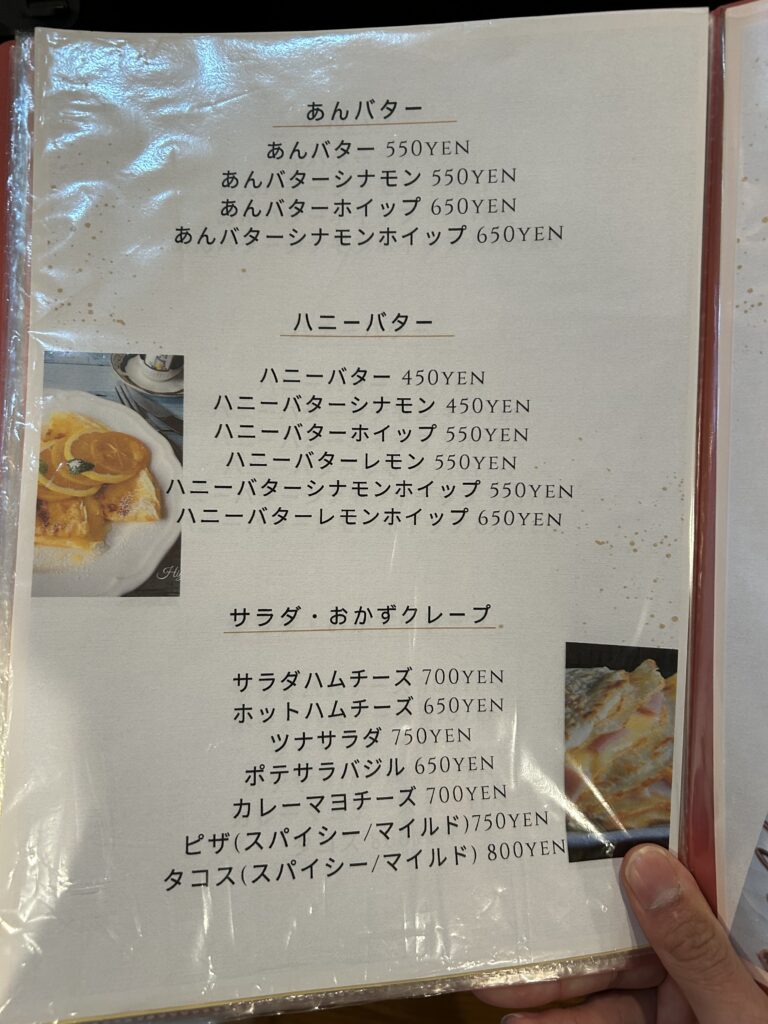 あんバター
あんバター 550YEN
あんバターシナモン 550YEN
あんバターホイップ 650YEN
あんバターシナモンホイップ 650YEN
ハニーバター
ハニーバター 450YEN
ハニーバターシナモン 450YEN
ハニーバターホイップ 550YEN
ハニーバターレモン 550YEN
ハニーバターシナモンホイップ 550YEN
ハニーバターレモンホイップ 650YEN
サラダ・おかずクレープ
サラダハムチーズ 700YEN
ホットハムチーズ 650YEN
ツナサラダ 750YEN
ポテサラバジル 650YEN
カレーマヨチーズ 700YEN
ピザ(スパイシー/マイルド)750YEN
タコス(スパイシー/マイルド) 800YEN